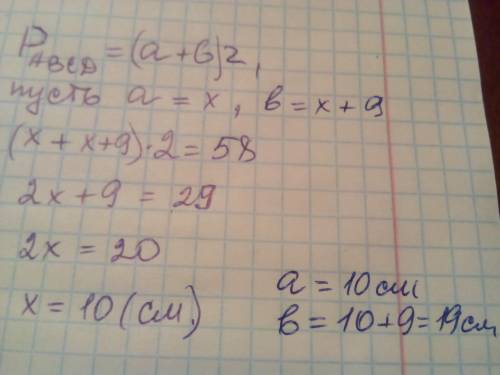 P_ABCD = (a+b)2,
пусть a = x, b = x + 9
(x + x+9)·2 = 58
2x + 9 = 29
2x = 20
x = 10 (см)
a = 10 см
b = 10+9 = 19 см